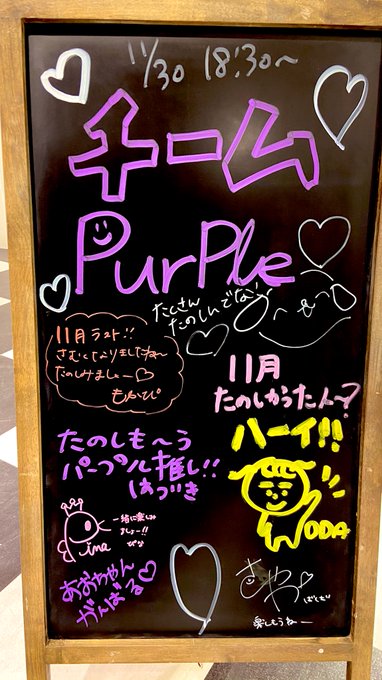 11/30 18:30~
チーム
PurPle
たくさん
たのしんでな!
11月ラスト!!
さむくなりましたね〜
たのしみましょー♡
もかぴ
11月
たのしかった人〜?
ハーイ!!
ODA
たのしも〜う
パープル推し!!
はづき
一緒に楽しみ
ましょー!!
ぴな
ina
あおちゃん
がんばる♡
楽しもうねー